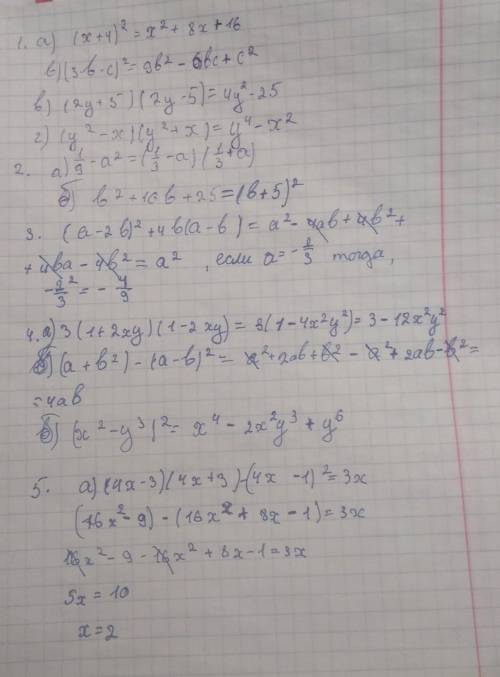 1. а) (x+4)² = x² + 8x + 16
в) (3b-c)² = 9b² - 6bc + c²
в) (2y+5)(2y-5) = 4y² - 25
г) (y² - x)(y² + x) = y⁴ - x²
2. а) 1/9 - a² = (1/3 - a)(1/3 + a)
б) b² + 10b + 25 = (b+5)²
3. (a-2b)² + 4b(a-b) = a² - 4ab + 4b² +
+ 4ba - 4b² = a² , если a = - 2/3 тогда,
- 2²/3 = - 4/9
4. а) 3(1+2xy)(1-2xy) = 3(1-4x²y²) = 3 - 12x²y²
(a+b²) - (a-b)² = a² + 2ab + b² - a² + 2ab - b² =
= 4ab
б) (x² - y³)² = x⁴ - 2x²y³ + y⁶
5. а) (4x-3)(4x+3) - (4x - 1)² = 3x
(16x² - 9) - (16x² + 8x - 1) = 3x
16x² - 9 - 16x² + 8x - 1 = 3x
5x = 10
x = 2